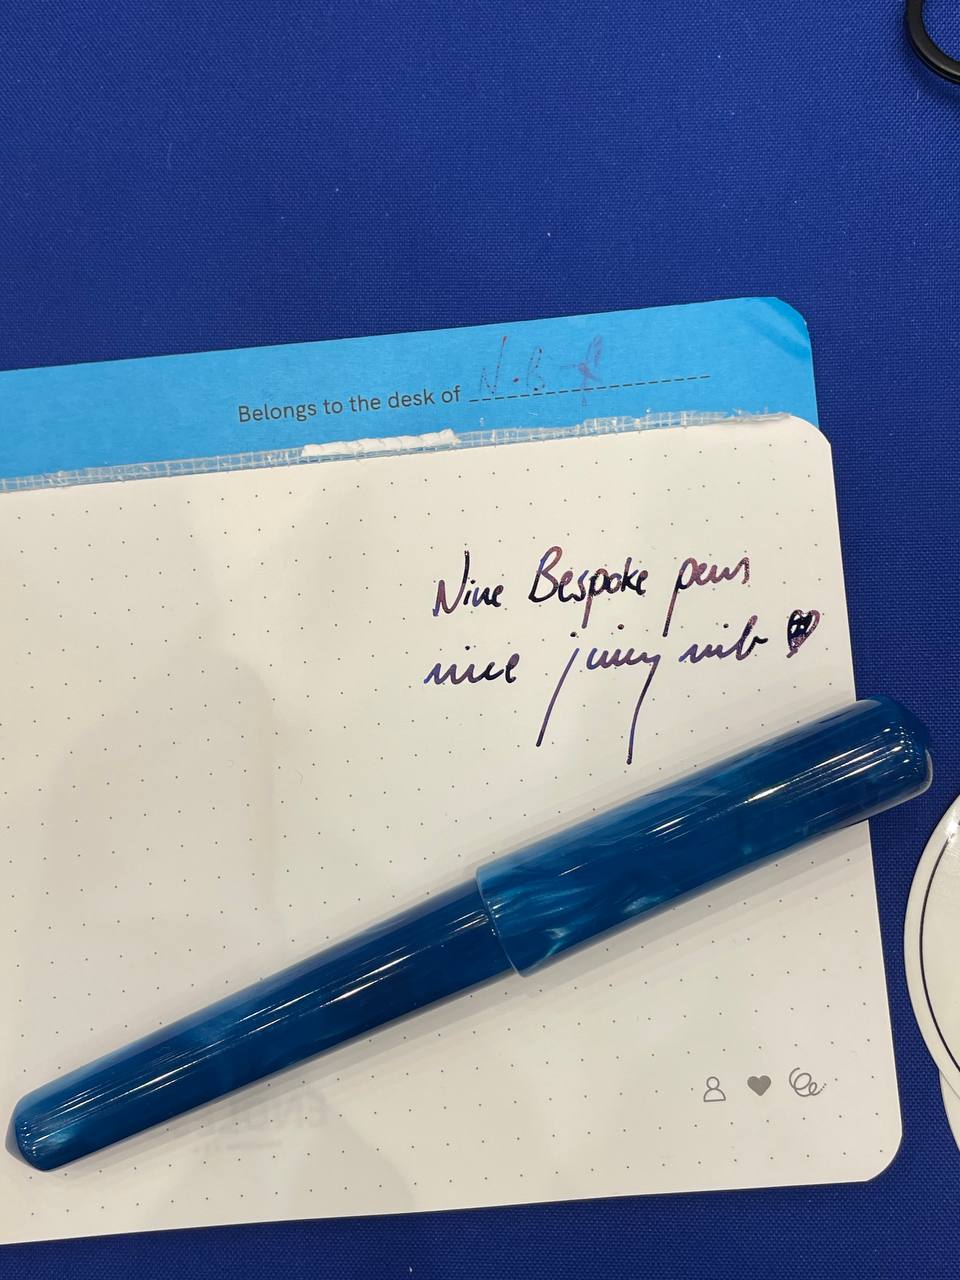 Belongs to the desk of N.B.
Nine Bespoke pens
nice juicy nib